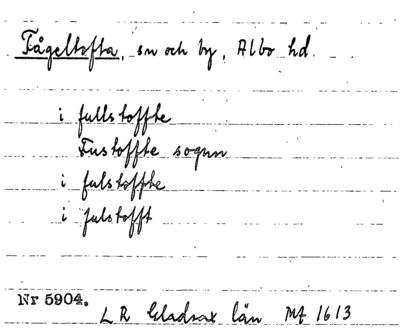 Fågeltofta, sn och by, Albo hd.
i fullstoffte
Fustoffte sognn
i fulstoffte
i fulstofft
Nr 5904.
LR Gladsax län Mf 1613